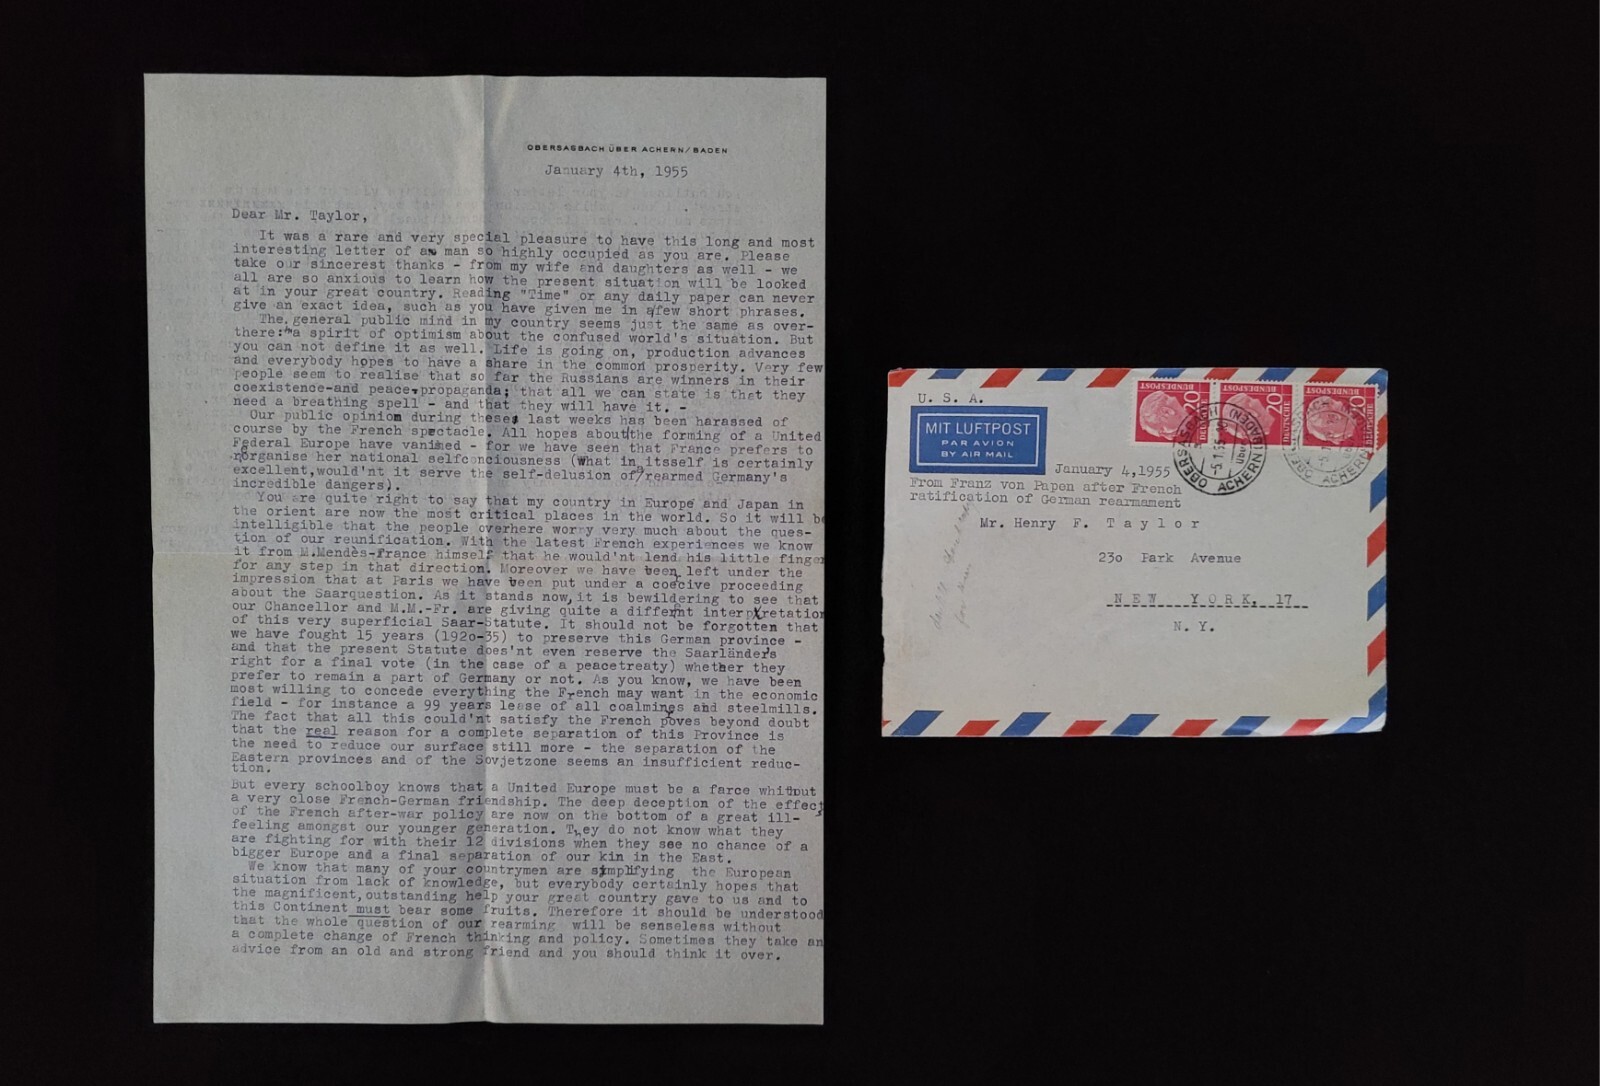 OBERSASBACH ÜBER ACHERN/BADEN
January 4th, 1955
Dear Mr. Taylor,
It was a rare and very special pleasure to have this long and most
interesting letter of a man so highly occupied as you are. Please
take our sincerest thanks - from my wife and daughters as well - we
all are so anxious to learn how the present situation will be looked
at in your great country. Reading "Time" or any daily paper can never
give an exact idea, such as you have given me in a few short phrases.
The general public mind in my country seems just the same as over-
there: "a spirit of optimism about the confused world's situation. But
you can not define it as well. Life is going on, production advances
and everybody hopes to have a share in the common prosperity. Very few
people seem to realise that so far the Russians are winners in their
coexistence-and peace-propaganda; that all we can state is that they
need a breathing spell - and that they will have it. -
Our public opinion during these last weeks has been harassed of
course by the French spectacle. All hopes about the forming of a United
Federal Europe have vanished - for we have seen that France prefers to
rorganise her national selfconciousness (what in itsself is certainly
excellent,would'nt it serve the self-delusion of rearmed Germany's
incredible dangers).
You are quite right to say that my country in Europe and Japan in
the orient are now the most critical places in the world. So it will be
intelligible that the people overhere worry very much about the ques-
tion of our reunification. With the latest French experiences we know
it from M.Mendès-France himself that he would'nt lend his little finger
for any step in that direction. Moreover we have been left under the
impression that at Paris we have been put under a coecive proceeding
about the Saarquestion. As it stands now, it is bewildering to see that
our Chancellor and M.M.-Fr. are giving quite a different interpretation
of this very superficial Saar-Statute. It should not be forgotten that
we have fought 15 years (1920-35) to preserve this German province -
and that the present Statute does'nt even reserve the Saarländer's
right for a final vote (in the case of a peacetreaty) whether they
prefer to remain a part of Germany or not. As you know, we have been
most willing to concede everything the French may want in the economic
field - for instance a 99 years lease of all coalmines and steelmills.
The fact that all this could'nt satisfy the French poves beyond doubt
that the real reason for a complete separation of this Province is
the need to reduce our surface still more - the separation of the
Eastern provinces and of the Sovjetzone seems an insufficient reduc-
tion.
But every schoolboy knows that a United Europe must be a farce whithout
a very close French-German friendship. The deep deception of the effect
of the French after-war policy are now on the bottom of a great ill-
feeling amongst our younger generation. They do not know what they
are fighting for with their 12 divisions when they see no chance of a
bigger Europe and a final separation of our kin in the East.
We know that many of your countrymen are simplifying the European
situation from lack of knowledge, but everybody certainly hopes that
the magnificent, outstanding help your great country gave to us and to
this Continent must bear some fruits. Therefore it should be understood
that the whole question of our rearming will be senseless without
a complete change of French thinking and policy. Sometimes they take an
advice from an old and strong friend and you should think it over.
U. S. A.
MIT LUFTPOST
PAR AVION
BY AIR MAIL
20
DEUTSCHE
BUNDESPOST
20
DEUTSCHE
BUNDESPOST
20
DEUTSCHE
BUNDESPOST
OBERSASBACH
über
ACHERN (BADEN)
-5.1.55
January 4,1955
From Franz von Papen after French
ratification of German rearmament
Mr. Henry F. Taylor
230 Park Avenue
NEW YORK, 17
N. Y.